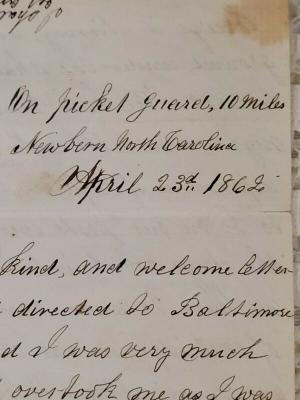 On picket guard, 10 miles
Newbern North Carolina
April 23d 1862
kind, and welcome letter
directed to Baltimore
d I was very much
overtook me as I was